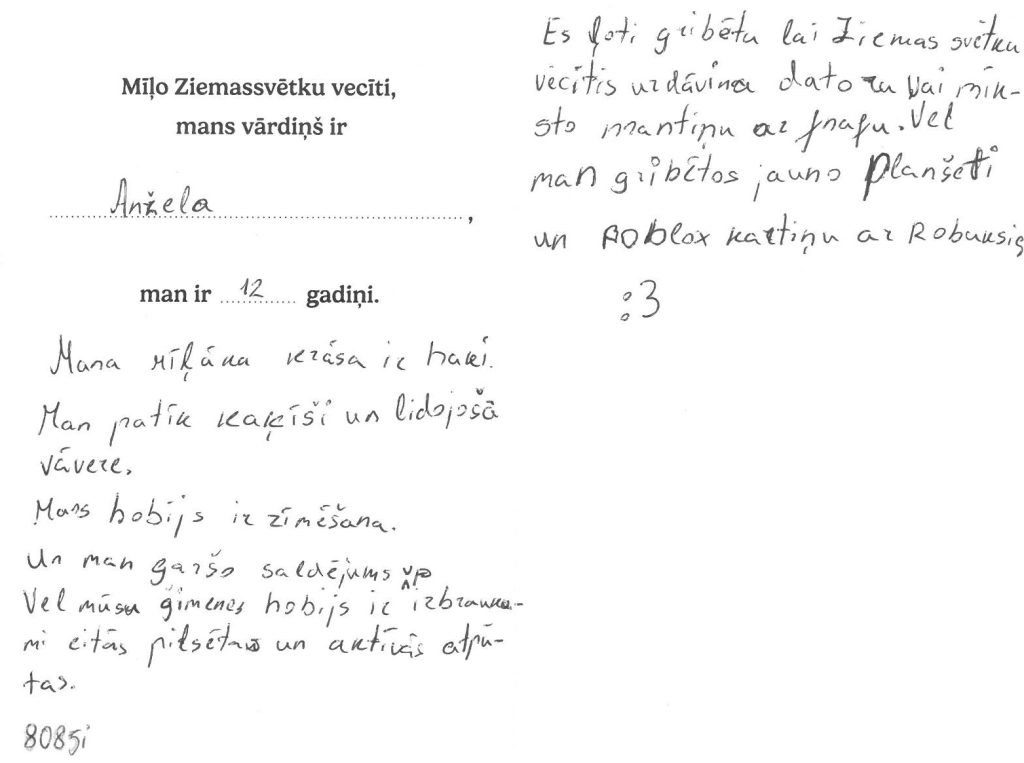 Mīļo Ziemassvētku vecīti,
mans vārdiņš ir
Anžela,
man ir 12 gadiņi.
Mana mīļāka krāsa ir haki.
Man patīk kaķīši un lidojošā
vāvere.
Mans hobijs ir zīmēšana.
Un man garšo saldējums
Vel mūsu ģimenes hobijs ir izbrauka-
mi citās pilsētas un aktīvās atpū-
tas.
8085i
Es ļoti gribētu lai Ziemas svētku
vecītis uzdāvina datoru vai mīk-
sto mantiņu ar fnafu. Vel
man gribētos jauno planšeti
un Roblox kartiņu ar Robuksiq
:3